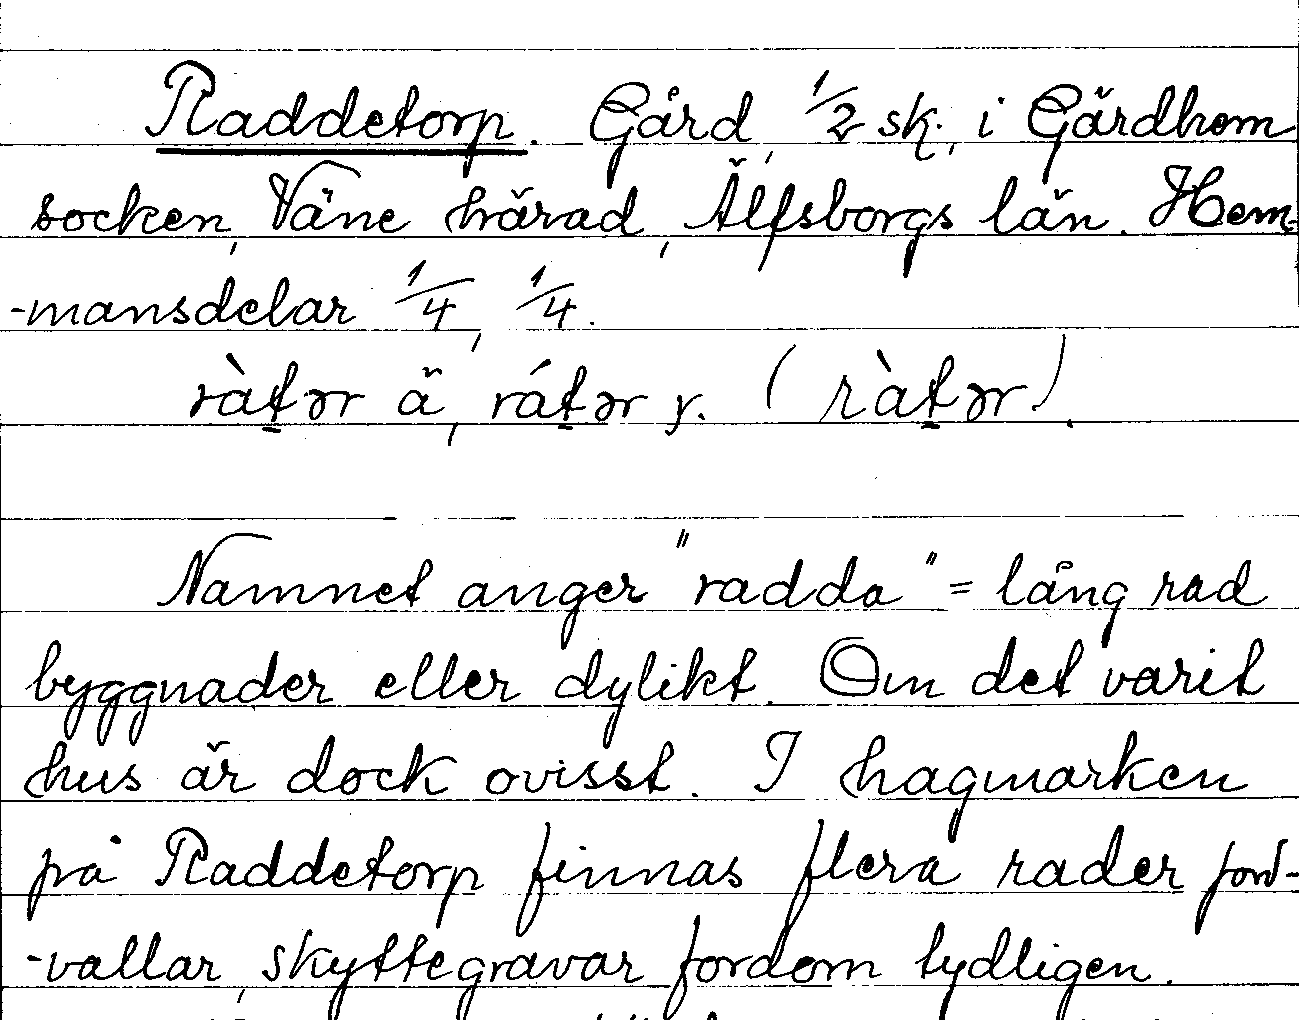 Raddetorp. Gård, 1/2 sk., i Gärdhem
socken, Väne härad, Älfsborgs län. Hem-
-mansdelar 1/4, 1/4.
ràtər ä, rátər y. (ràtər).
Namnet anger "radda" = lång rad
byggnader eller dylikt. Om det varit
hus är dock ovisst. I hagmarken
på Raddetorp finnas flera rader jord-
-vallar, skyttegravar fordom tydligen.